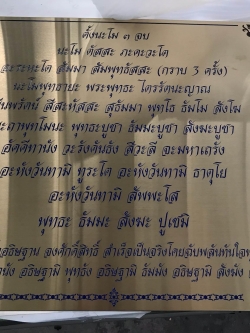 ตั้งนะโม ๓ จบ
นะโม ตัสสะ ภะคะวะโต
อะระหะโต สัมมา สัมพุทธัสสะ (กราบ 3 ครั้ง)
นะโมพุทธายะ พระพุทธะ ไตรรัตนะญาณ
สีสะหัสสะ สุธัมมา พุทโธ ธัมโม สังโฆ
พุทธะบูชา ธัมมะบูชา สังฆะบูชา
อัคคีทานัง วะรังคันธัง สีวะลี จะมหาเถรัง
อะหังวันทามิ ทูระโต อะหังวันทามิ ธาตุโย
อะหังวันทามิ สัพพะโส
พุทธะ ธัมมะ สังฆะ ปูเชมิ
อธิษฐาน องศักดิ์สิทธิ์ สำเร็จเป็นจริงโดยฉับพลันทันใจ
อธิษฐามิ พุทธัง อธิษฐามิ ธัมมัง อธิษฐามิ สังฆัง